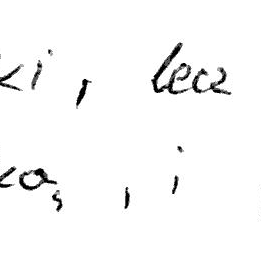 ki, lecz
ką, , i